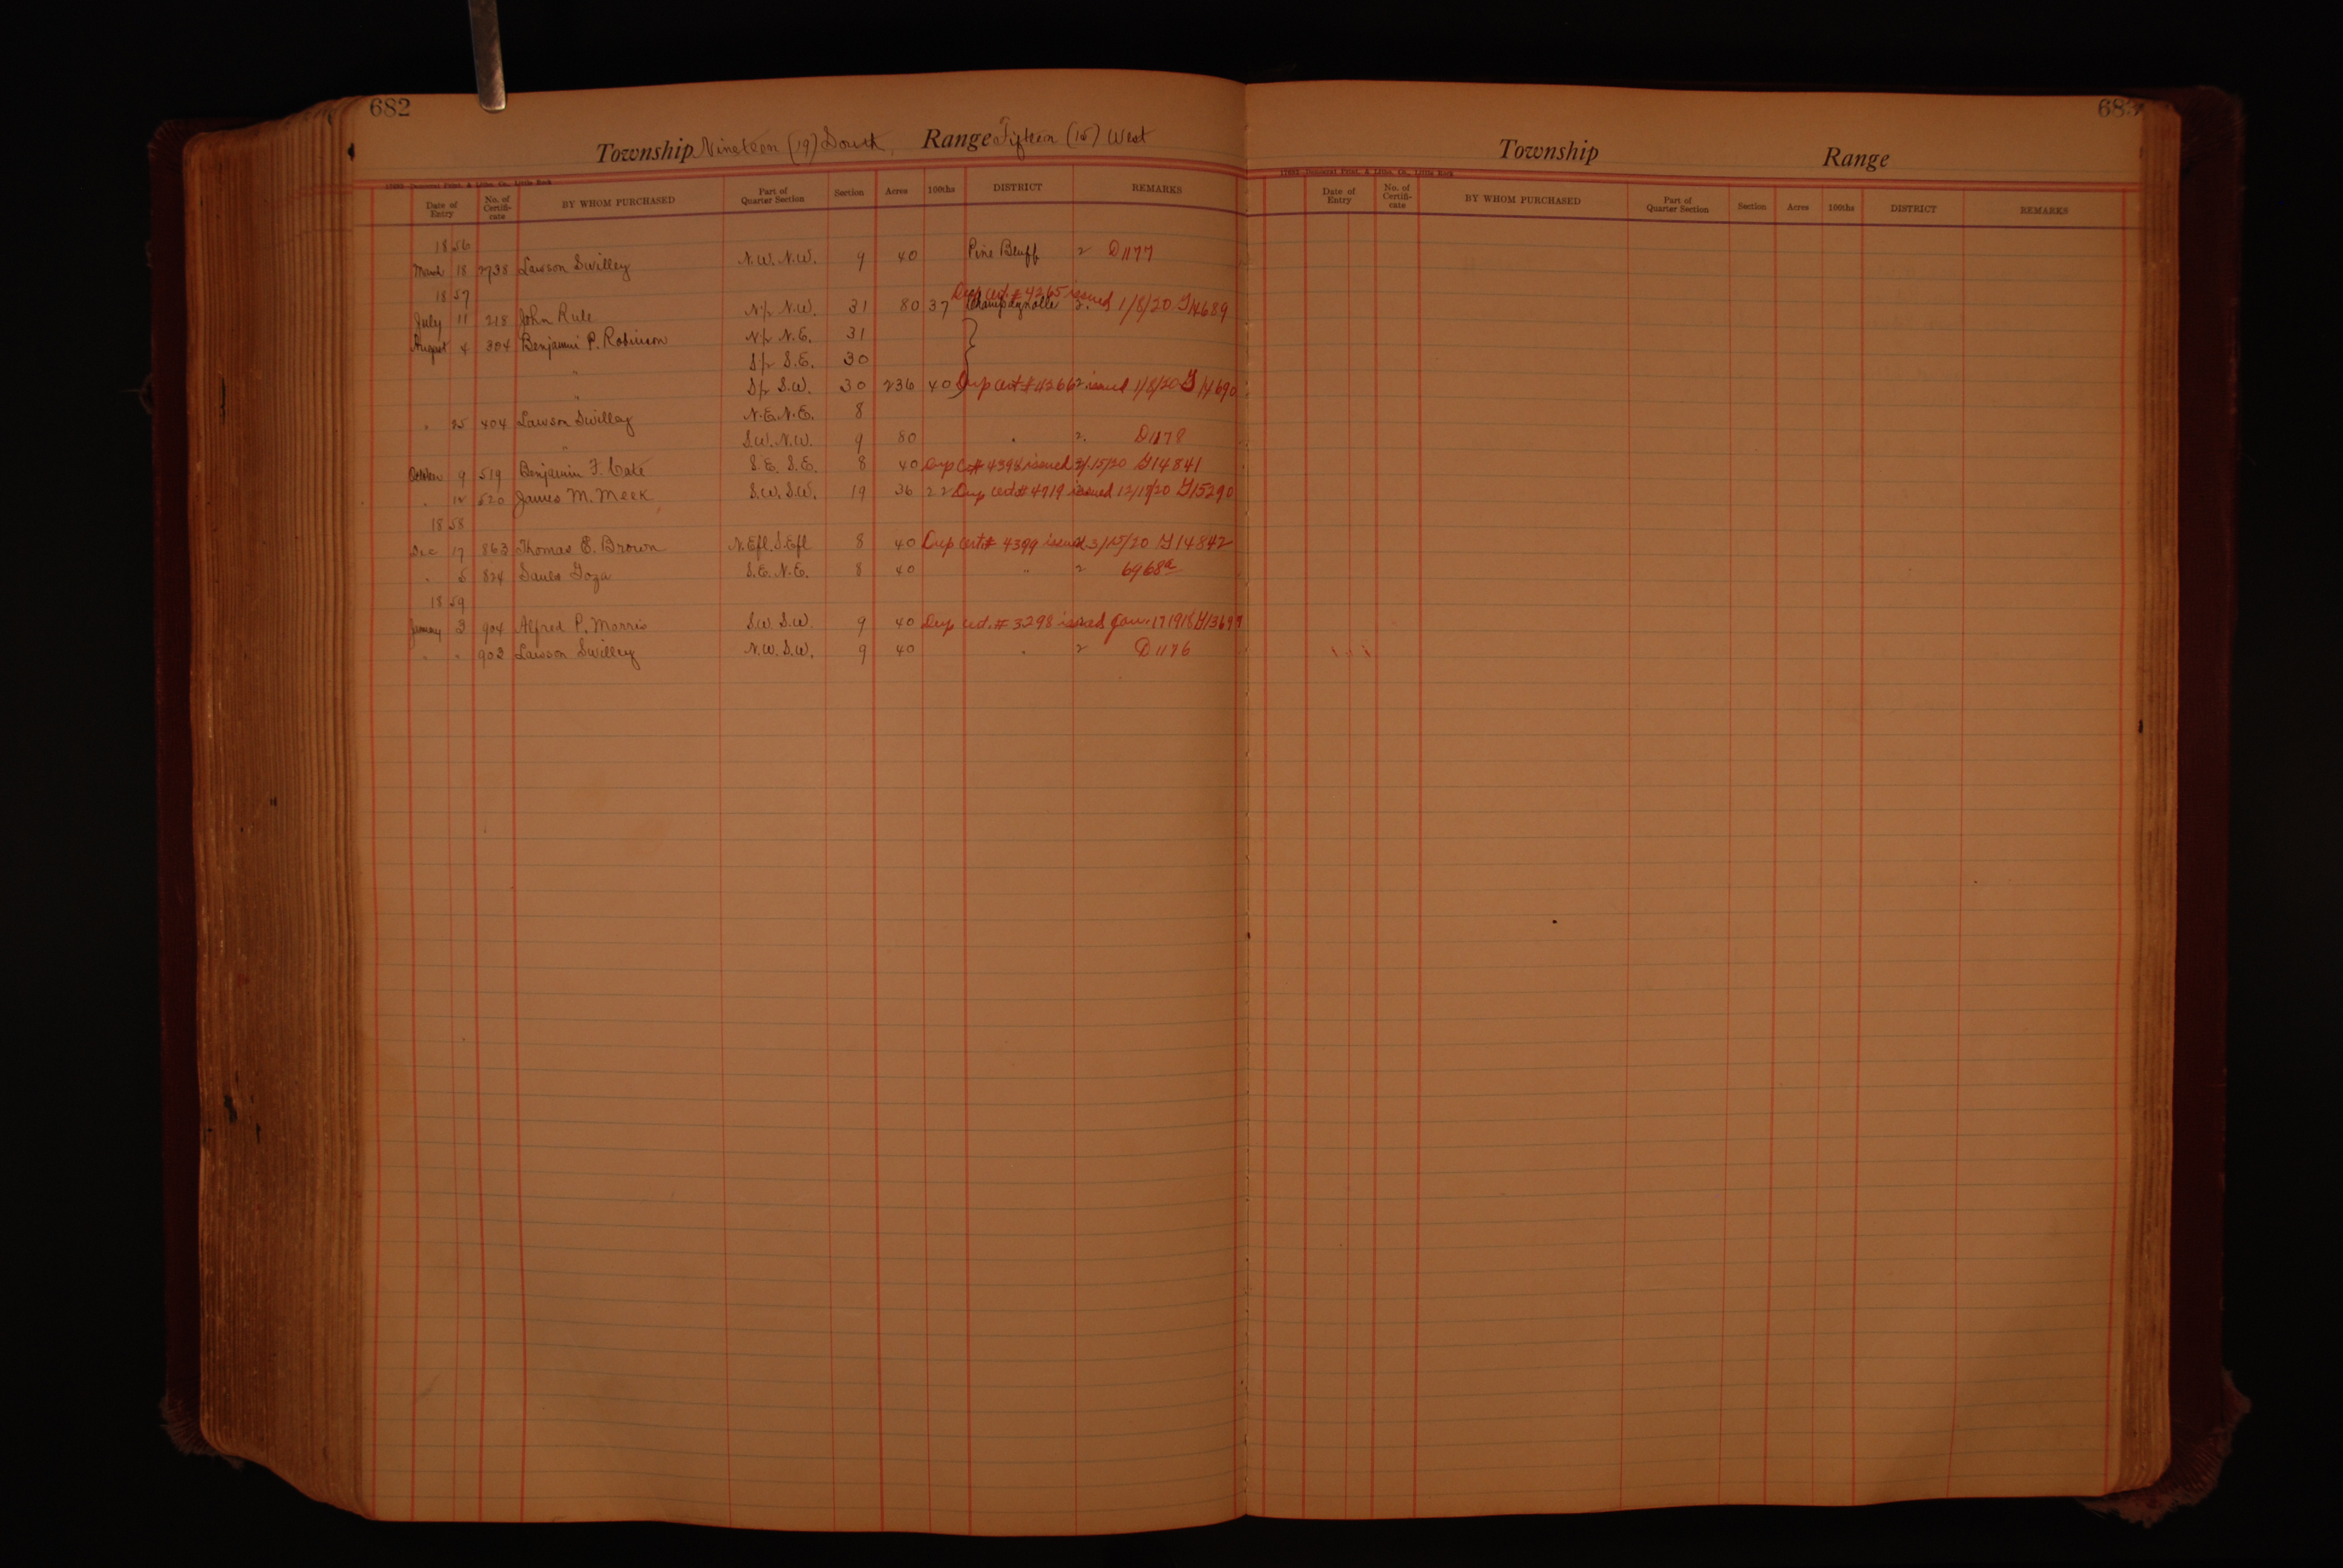 682
Township Nineteen (19) South, Range Fifteen (15) West
Date of Entry No. of Certifi-cate BY WHOM PURCHASED Part of Quarter Section Section Acres 100ths DISTRICT REMARKS
1856
March 18 2738 Lawson Swilley N.W. N.W. 9 40 Pine Bluff 2 D1177
1857 Dup cert. # 4265 issued
July 11 218 John Rule N/2 N.W. 31 80 37 Champagnolle 2. 1/8/20 G14689
August 4 304 Benjamin P. Robinson N/2 N.E. 31
" S/2 S.E. 30
" S/2 S.W. 30 236 40 Dup cert # 4266 2 issued 1/8/20 G 14690
" 25 404 Lawson Swilley N.E. N.E. 8
" S.W. N.W. 9 80 " 2. D1178
October 9 519 Benjamin F. Cate S.E. S.E. 8 40 Dup C# 4398 issued 3/15/20 G14841
" 12 520 James M. Meek S.W. S.W. 19 36 22 Dup cert # 4719 issued 12/17/20 G15290
1858
Dec 17 863 Thomas E. Brown N.Efl. S.Efl 8 40 Dup cert # 4399 issued 3/15/20 G14842
" 5 824 Goza S.E. N.E. 8 40 " 2 6968a
1859
January 3 904 Alfred P. Morris S.W. S.W. 9 40 Dup cert. # 3298 issued Jan. 17 1918
" " 902 Lawson Swilley N.W. S.W. 9 40 " 2 D1176
683
Township Range
Date of Entry No. of Certifi-cate BY WHOM PURCHASED Part of Quarter Section Section Acres 100ths DISTRICT REMARKS